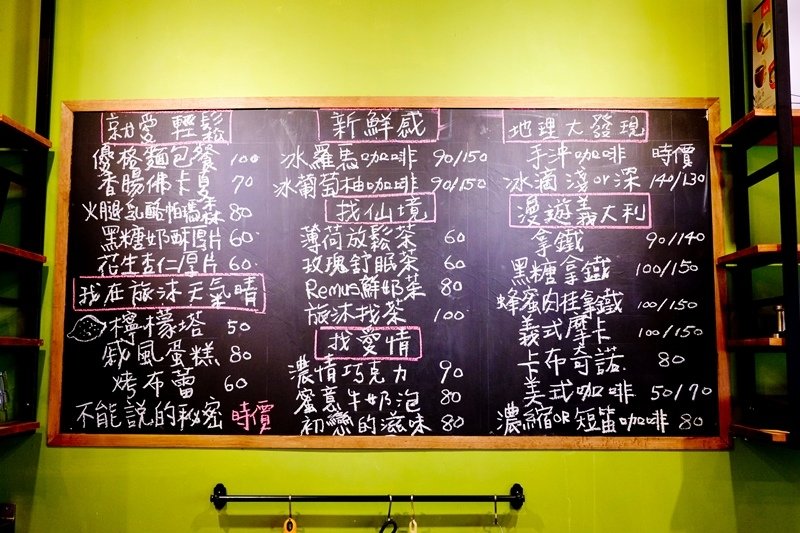 就愛輕鬆
優格麵包餐 100
香腸佛卡夏 70
火腿乳酪帕瑪森 80
黑糖奶酥厚片 60
花生杏仁厚片 60
我在旅沐天氣晴
檸檬塔 50
戚風蛋糕 80
烤布蕾 60
不能說的秘密 時價
新鮮感
冰羅馬咖啡 90/150
冰葡萄柚咖啡 90/150
找仙境
薄荷放鬆茶 60
玫瑰舒眠茶 60
Remus鮮奶茶 80
旅沐找茶 100
找愛情
濃情巧克力 90
蜜意牛奶泡 80
初戀的滋味 80
地理大發現
手沖咖啡 時價
冰滴淺or深 140/130
漫遊義大利
拿鐵 90/140
黑糖拿鐵 100/150
蜂蜜肉桂拿鐵 100/150
義式摩卡 100/150
卡布奇諾 80
美式咖啡 50/70
濃縮OR短笛咖啡 80